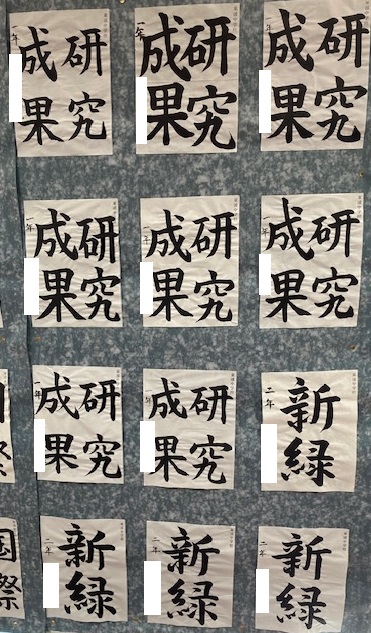 研究
成果
一年
研究
成果
一年
研究
成果
一年
研究
成果
一年
研究
成果
一年
研究
成果
一年
研究
成果
一年
研究
成果
一年
新緑
二年
国際
新緑
二年
新緑
二年
新緑
二年